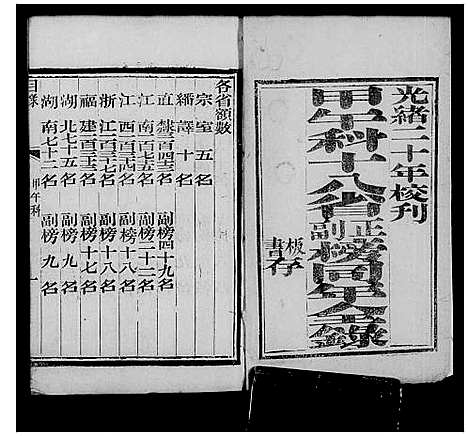 光緒二十年校刊
甲午科十八省正副榜同年全錄
板存
書
各省額數
宗室五名
繙譯十名
直隸百四三名 副榜四十九名
江南百七五名 副榜二十二名
江西百三四名 副榜十八名
浙江百三七名 副榜十八名
福建百三三名 副榜十七名
湖北七十五名 副榜九名
湖南七十二名 副榜九名
目錄 甲午科 一